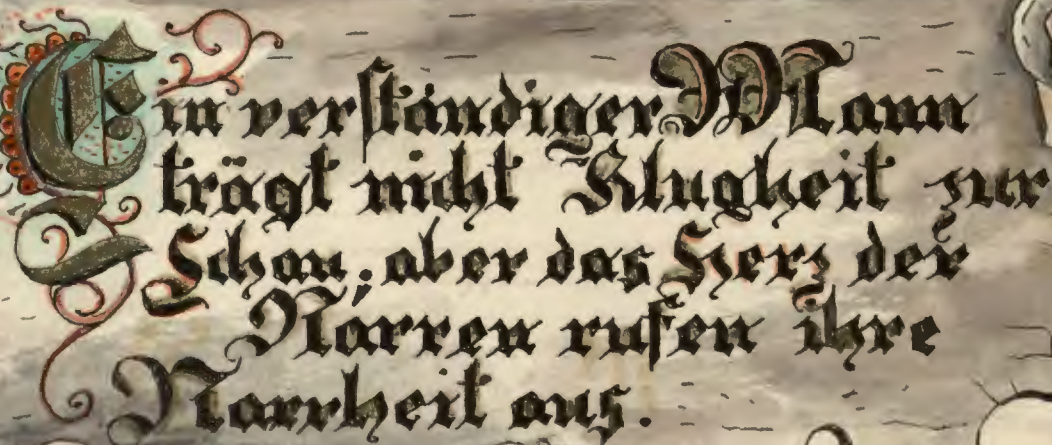 Ein verständiger Mann
trägt nicht Klugheit zur
Schau; aber das Herz der
Narren rufen ihre
Narrheit aus.